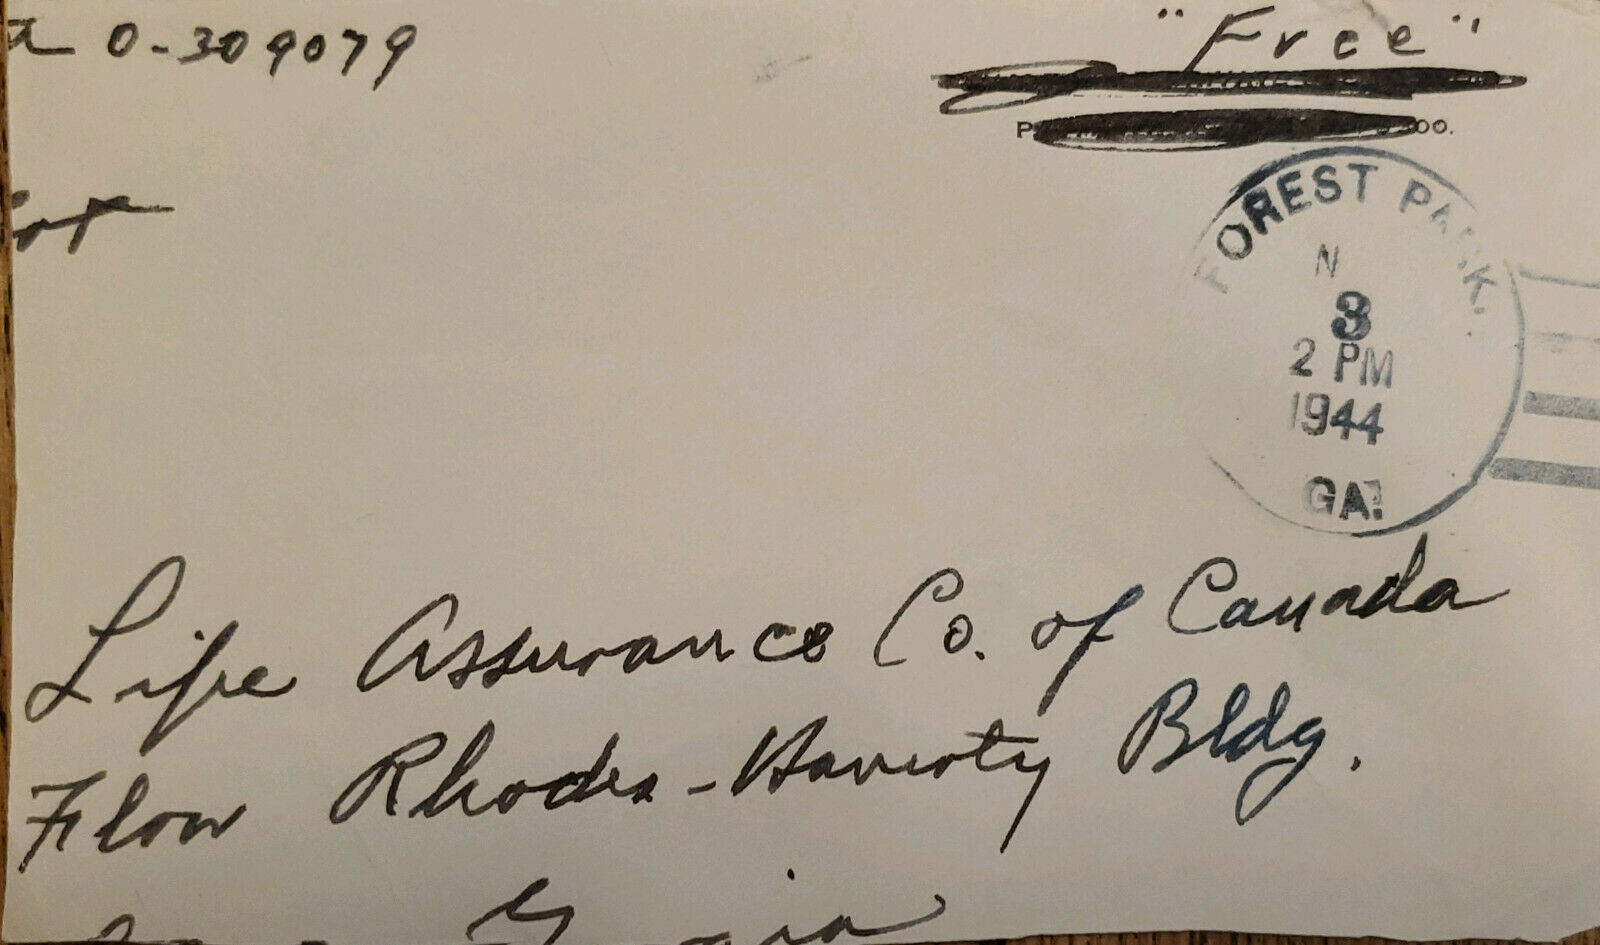 0-309079
"Free"
FOREST PARK.
N
3
2 PM
1944
GA.
Life Assurance Co. of Canada
Floor Rhodes-Haverty Bldg.